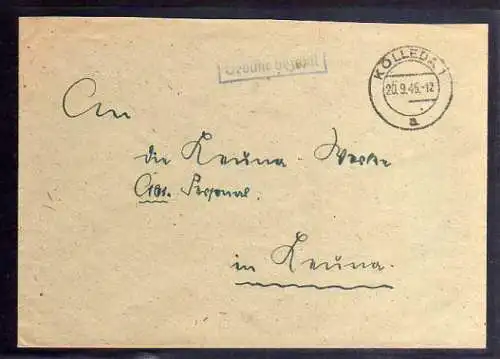 Gebühr bezahlt
KÖLLEDA 1
20.9.45.-12
a
An
die Leuna-Werke
Abt. Personal.
in Leuna.